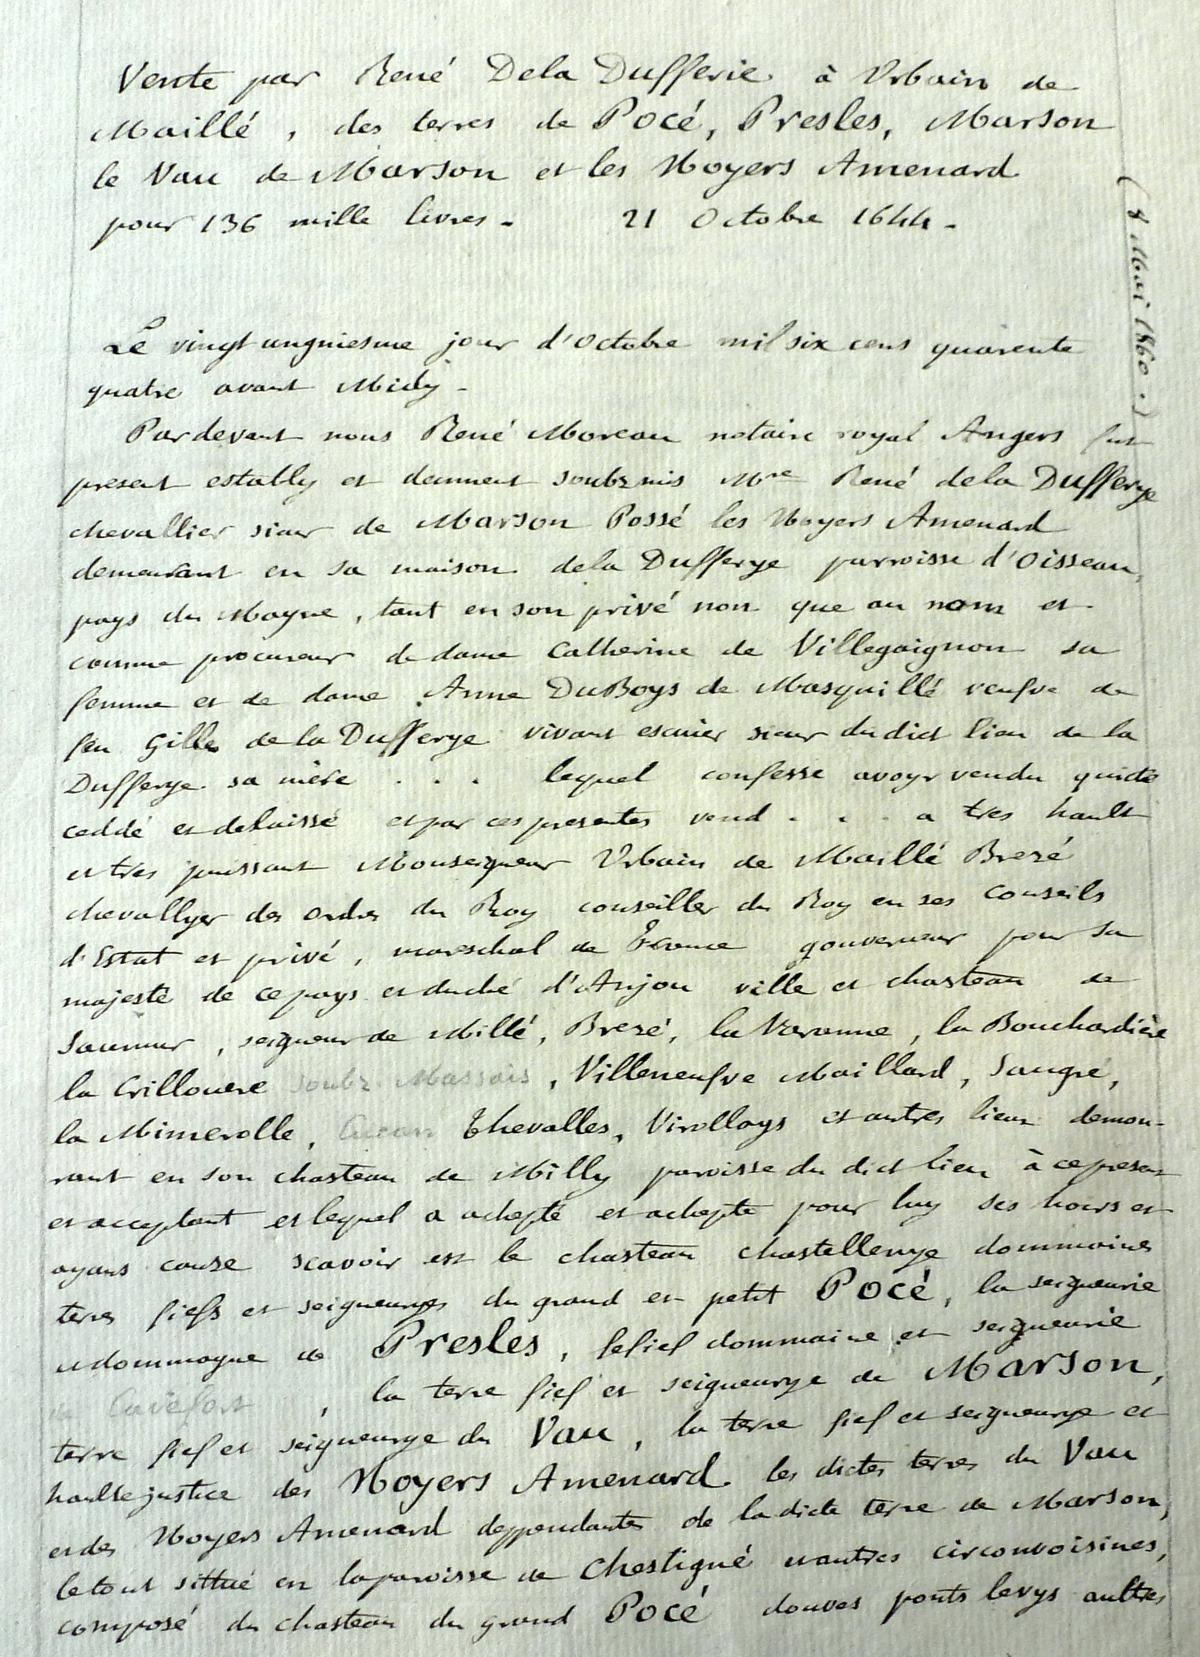 Vente par René Dela Dufferie à Urbain de
Maillé, des terres de Pocé, Presles, Marson
le Vau de Marson et les Noyers Amenard
pour 136 mille livres. 21 Octobre 1644.
(8 Mai 1860.)
Le vingt ungniesme jour d'Octobre mil six cens quarente
quatre avant Midy.
Pardevant nous René Moreau notaire royal Angers fut
present estably et deument soubzmis Mre René dela Dufferye
chevallier sieur de Marson Possé les Noyers Amenard
demeurant en sa maison dela Dufferye parroisse d'Oisseau,
pays du Mayne, tant en son privé nom que au nom et
comme procureur de dame Catherine de Villegaignon sa
femme et de dame Anne DuBoys de Masquillé veufve de
feu Gilles de la Dufferye vivant escuier sieur du dict lieu de la
Dufferye sa mère . . . lequel confesse avoyr vendu quicté
ceddé et delaissé et par ces presentes vend . . . a tres hault
et tres puissant Monseigneur Urbain de Maillé Brezé
chevallyer des ordres du Roy conseiller du Roy en ses Conseils
d'Estat et privé, mareschal de France gouverneur pour sa
majesté de ce pays et duché d'Anjou ville et chasteau de
Saumur, seigneur de Millé, Brezé, la Varanne, la Bouchardière
la Crillouere soubz Massais, Villeneufve Maillard, Sangré,
la Mimerolle, Thevalles, Virollays et autres lieux demeu-
rant en son chasteau de Milly paroisse du dict lieu à ce presant
et acceptant et lequel a achepté et achepte pour luy ses hoirs et
ayans cause scavoir est le chasteau chastellenye dommaines
terres fiefs et seigneuryes du grand et petit Pocé, la seigneurie
et dommayne de Presles, le fief dommaine et seigneurie
de Cavefort, la terre fief et seigneurye de Marson,
terre fief et seigneurye du Vau, la terre fief et seigneurye et
haulte justice des Noyers Amenard les dictes terres du Vau
et des Noyers Amenard deppendantes de la dicte terre de Marson,
le tout sittué en la paroisse de Chestigné et autres circonvoisines,
composé du chasteau du grand Pocé douves ponts levys aultres